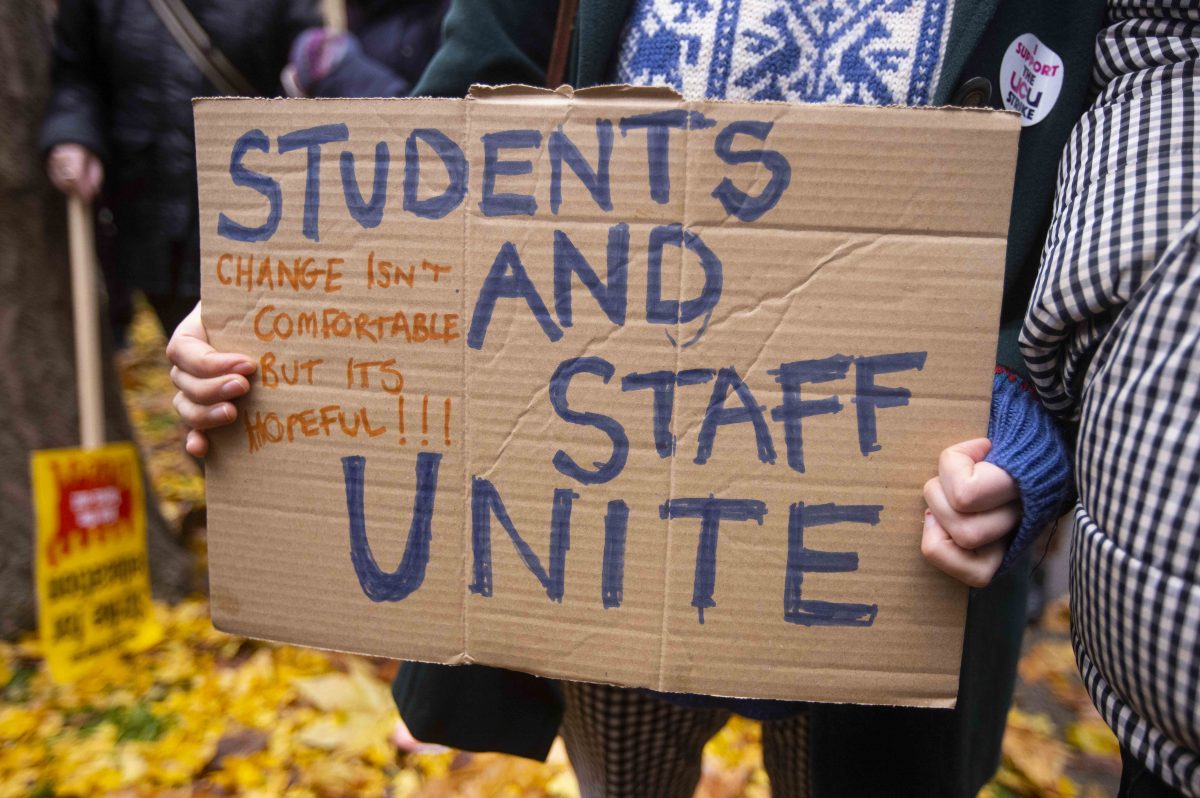 STUDENTS
AND
STAFF
UNITE
CHANGE ISN'T
COMFORTABLE
BUT ITS
HOPEFUL!!!
I
SUPPORT
THE
UCU
STRIKE